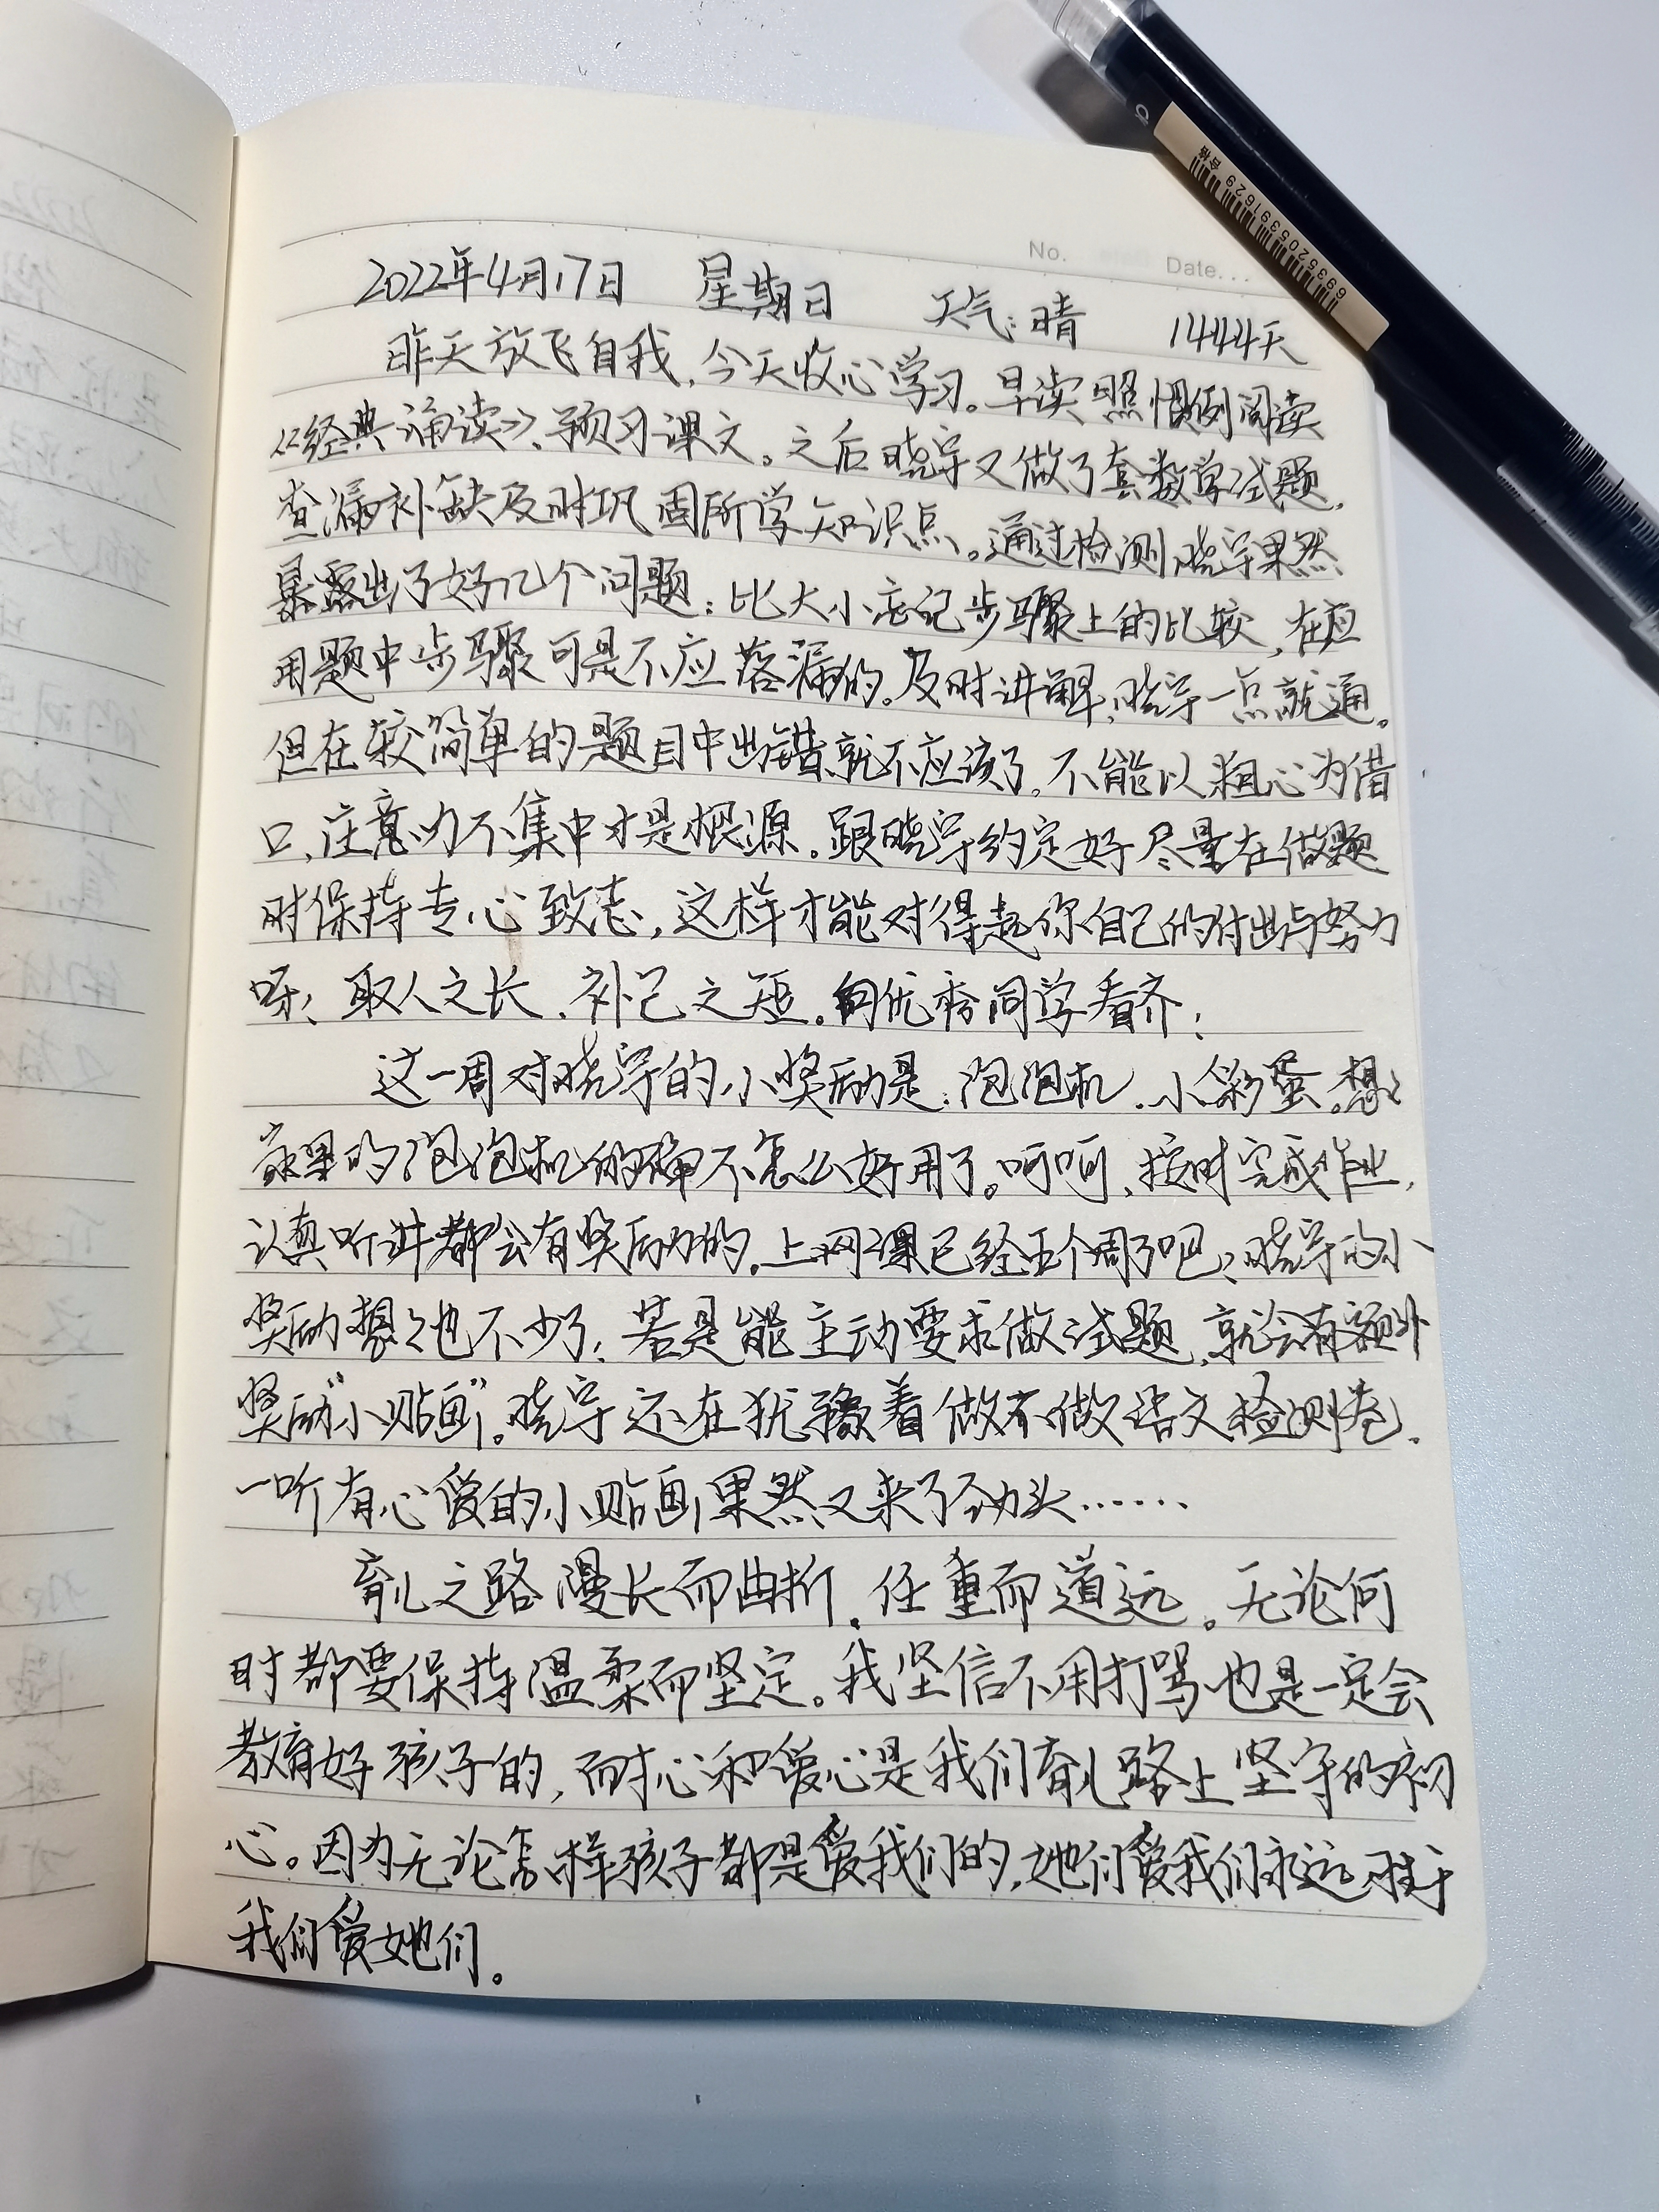 No.
Date...
2022年4月17日 星期日 天气:晴 1444天
昨天放飞自我,今天收心学习。早读照惯例阅读
《经典诵读》、预习课文。之后晓宇又做了套数学试题,
查漏补缺及时巩固所学知识点。通过检测,晓宇果然
暴露出了好几个问题:比大小忘记步骤上的比较,在应
用题中步骤可是不应落漏的。及时讲解,晓宇一点就通。
但在较简单的题目中出错就不应该了。不能以粗心为借
口,注意力不集中才是根源。跟晓宇约定好尽量在做题
时保持专心致志,这样才能对得起你自己的付出与努力
呀!取人之长、补己之短。向优秀同学看齐!
这一周对晓宇的小奖励是:泡泡机、小彩蛋。想想
家里的泡泡机的确不怎么好用了。呵呵,按时完成作业,
认真听讲都会有奖励的。上网课已经五个周了吧,晓宇的小
奖励想想也不少了!若是能主动要求做试题,就会有额外
奖励“小贴画”。晓宇还在犹豫着做不做语文检测卷,
一听有心爱的小贴画果然又来了劲头……
育儿之路漫长而曲折,任重而道远。无论何
时都要保持温柔而坚定。我坚信不用打骂也是一定会
教育好孩子的,而耐心和爱心是我们育儿路上坚守的初
心。因为无论怎样孩子都是爱我们的,她们爱我们永远胜于
我们爱她们。
6935205391629 合格